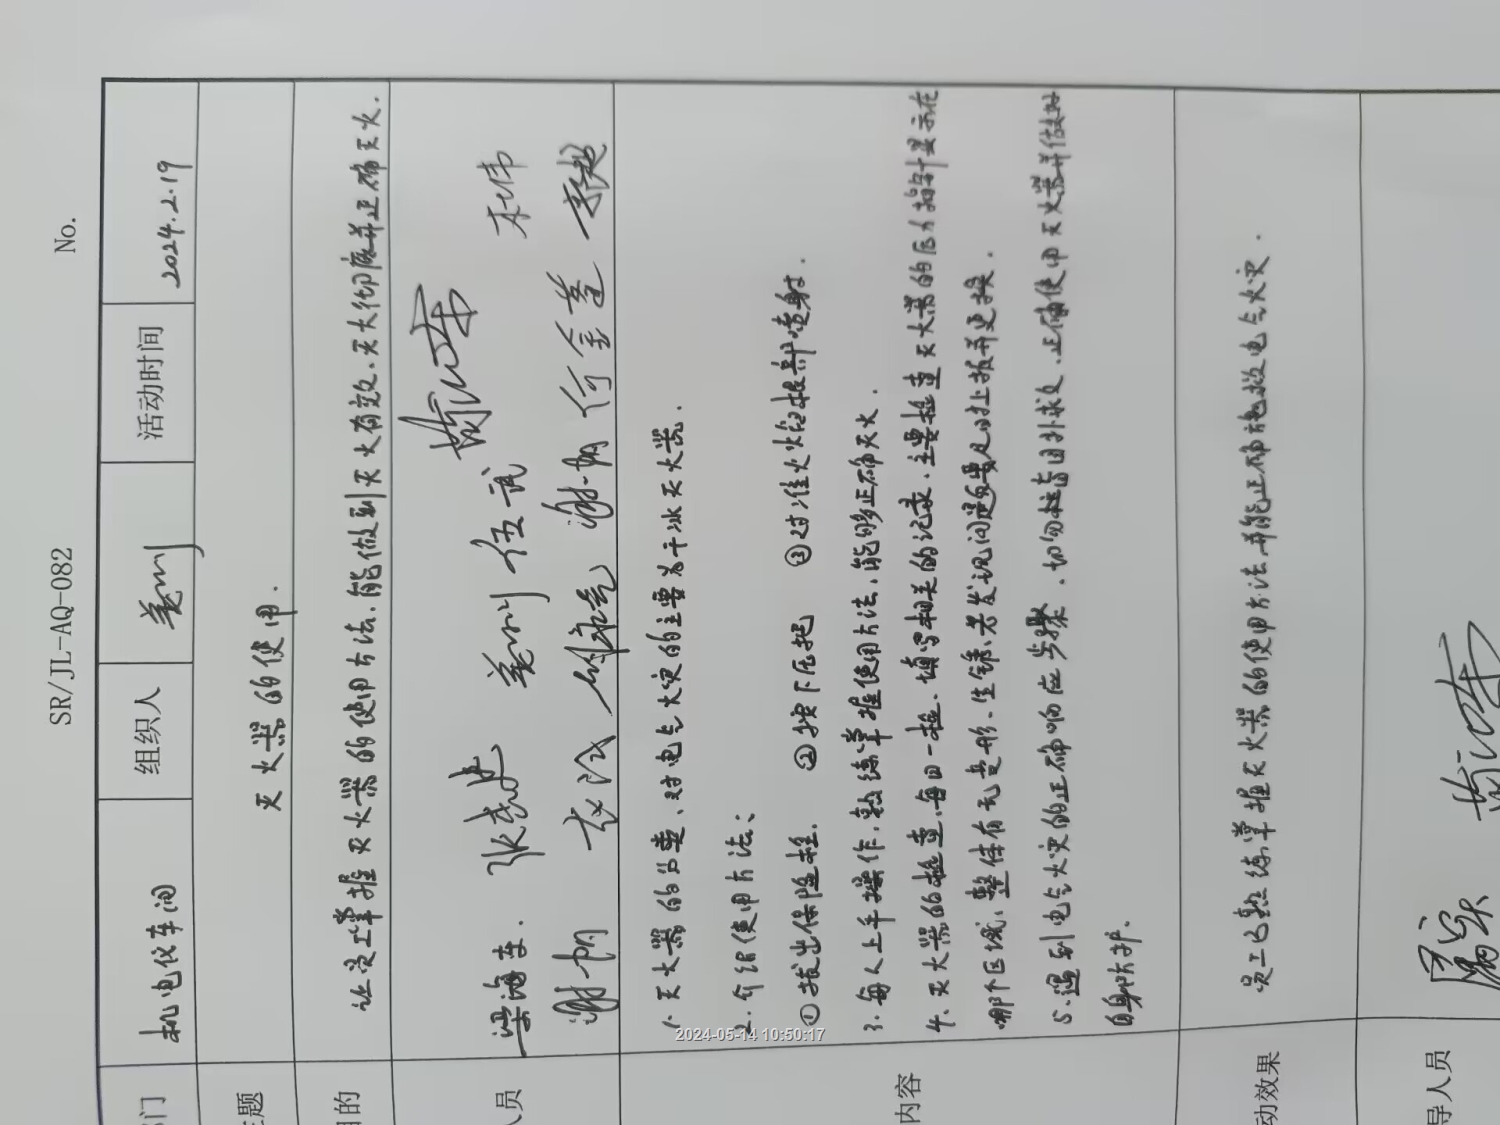 SR/JL-AQ-082 No.
部门 机电仪车间 组织人 姜川 活动时间 2024.2.19
主题 灭火器的使用.
目的 让员工掌握灭火器的使用方法,能做到灭火有效、灭火彻底并正确灭火.
人员 梁海车. 姜川 伍武 杜伟
谢帅 谢帅 李超
内容
1. 灭火器的分类、对电气火灾的主要为干冰灭火器.
2. 介绍使用方法:
①拔出保险栓. ②按下压把 ③对准火焰根部喷射.
3. 每人上手操作,熟练掌握使用方法,能够正确灭火.
4. 灭火器的检查,每日一检、填写相关的记录.主要检查灭火器的压力指针显示在
哪个区域、整体有无变形、生锈、若发现问题需要及时上报并更换.
5. 遇到电气火灾的正确响应步骤.切勿独自扑救、正确使用灭火器并做好
自身防护.
动效果 员工已熟练掌握灭火器的使用方法,并能正确施救电气火灾.
导人员
2024-05-14 10:50:17